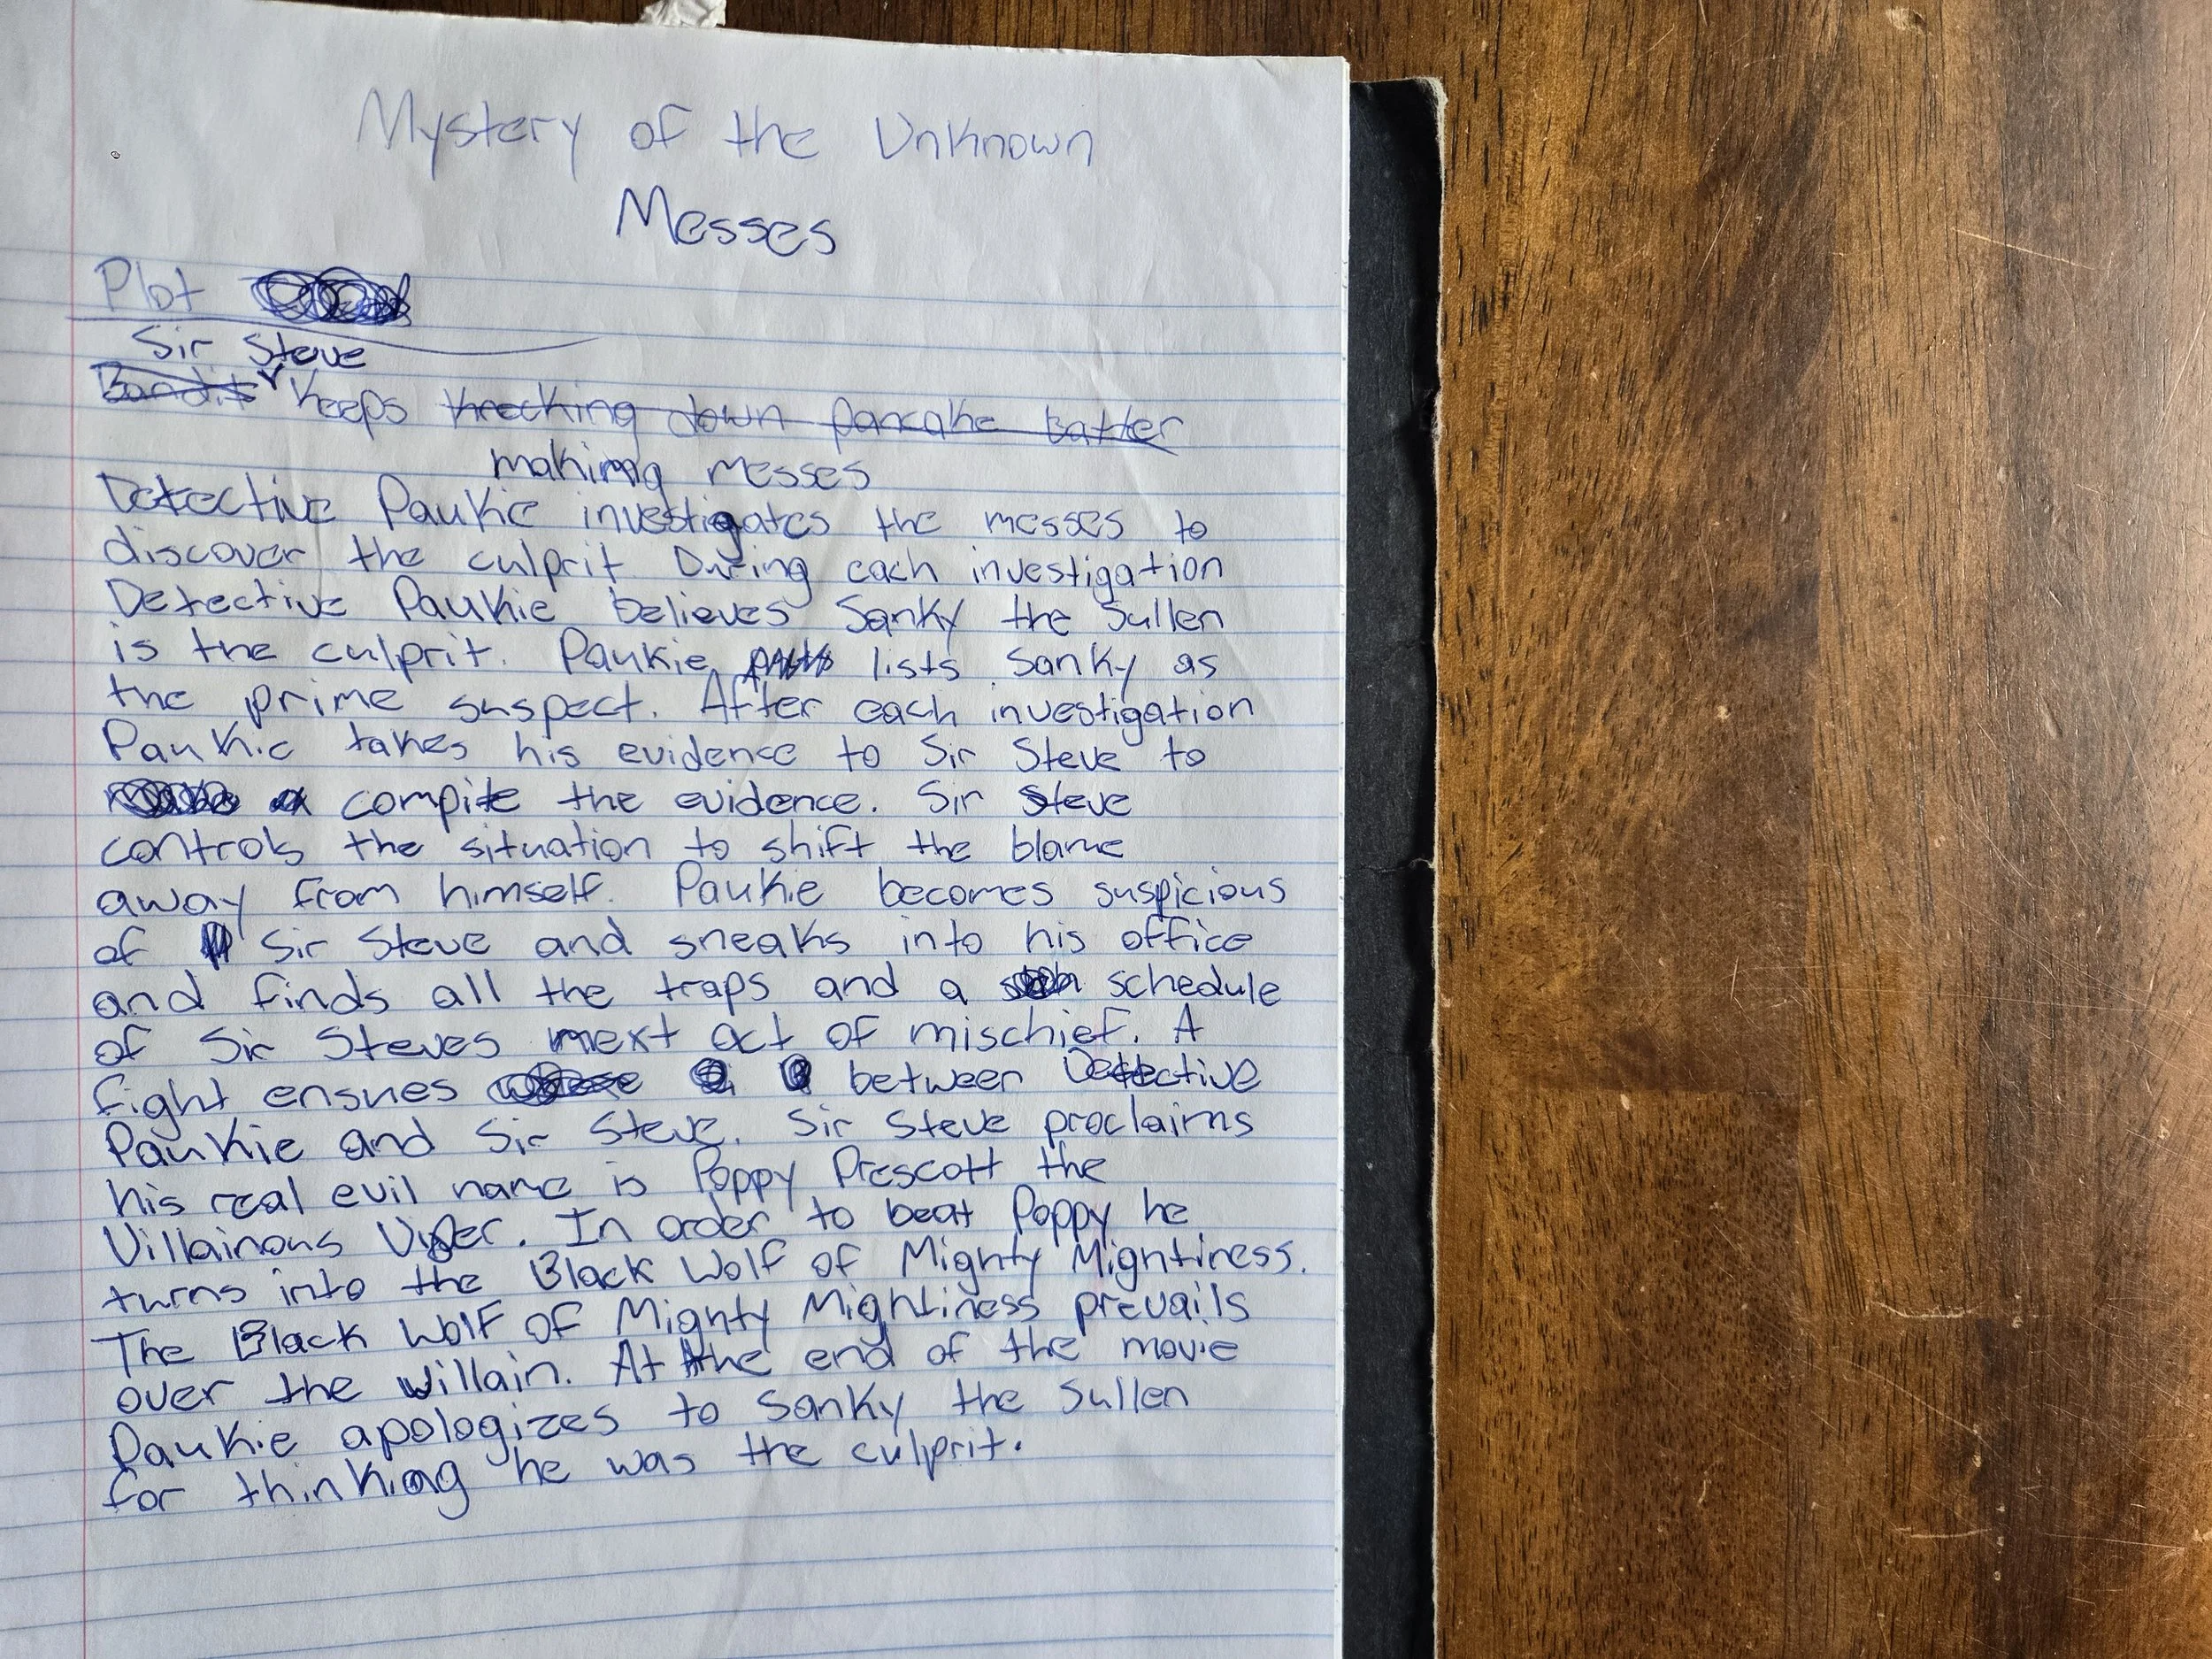 Mystery of the Unknown
Messes
Plot
Sir Steve
Bandit Keeps knocking down pancake batter
making messes
Detective Paukie investigates the messes to
discover the culprit During each investigation
Detective Paukie believes Sanky the Sullen
is the culprit. Paukie lists Sanky as
the prime suspect. After each investigation
Paukie takes his evidence to Sir Steve to
compile the evidence. Sir Steve
controls the situation to shift the blame
away from himself. Paukie becomes suspicious
of Sir Steve and sneaks into his office
and finds all the traps and a schedule
of Sir Steves next act of mischief. A
fight ensues between Detective
Paukie and Sir Steve. Sir Steve proclaims
his real evil name is Poppy Prescott the
Villainous Viper. In order to beat Poppy he
turns into the Black Wolf of Mighty Mightiness.
The Black Wolf of Mighty Mightiness prevails
over the villain. At the end of the movie
Paukie apologizes to Sanky the Sullen
for thinking he was the culprit.